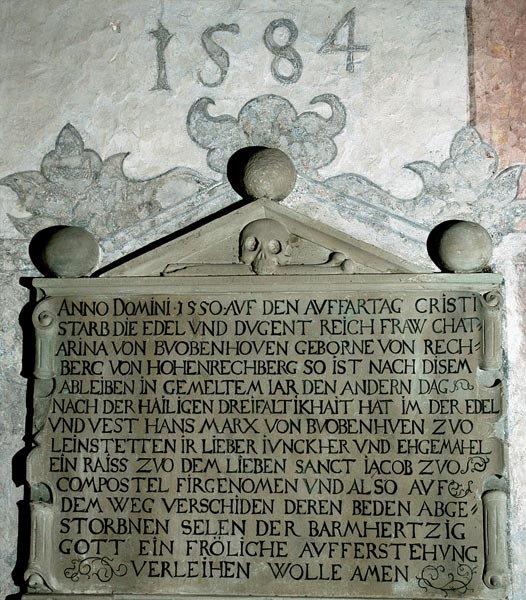 1584
ANNO DOMINI·1550·AVF DEN AVFFARTAG CRISTI
STARB DIE EDEL VND DVGENT REICH FRAW CHAT-
ARINA VON BVOBENHOVEN GEBORNE VON RECH-
BERG VON HOHENRECHBERG SO IST NACH DISEM
ABLEIBEN IN GEMELTEM IAR DEN ANDERN DAG
NACH DER HÄILIGEN DREIFALTIKHAIT HAT IM DER EDEL
VND VEST HANS MARX VON BVOBENHVEN ZVO
LEINSTETTEN IR LIEBER IVNCKHER VND EHGEMAHEL
EIN RAISS ZVO DEM LIEBEN SANCT IACOB ZVO
COMPOSTEL FIRGENOMEN VND ALSO AVF
DEM WEG VERSCHIDEN DEREN BEDEN ABGE-
STORBNEN SELEN DER BARMHERTZIG
GOTT EIN FRÖLICHE AVFFERSTEHVNG
VERLEIHEN WOLLE AMEN